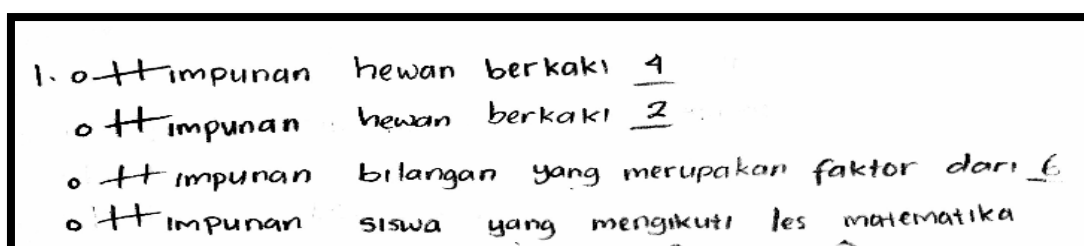 1. o Himpunan hewan berkaki 4
o Himpunan hewan berkaki 2
o Himpunan bilangan yang merupakan faktor dari 6
o Himpunan siswa yang mengikuti les matematika